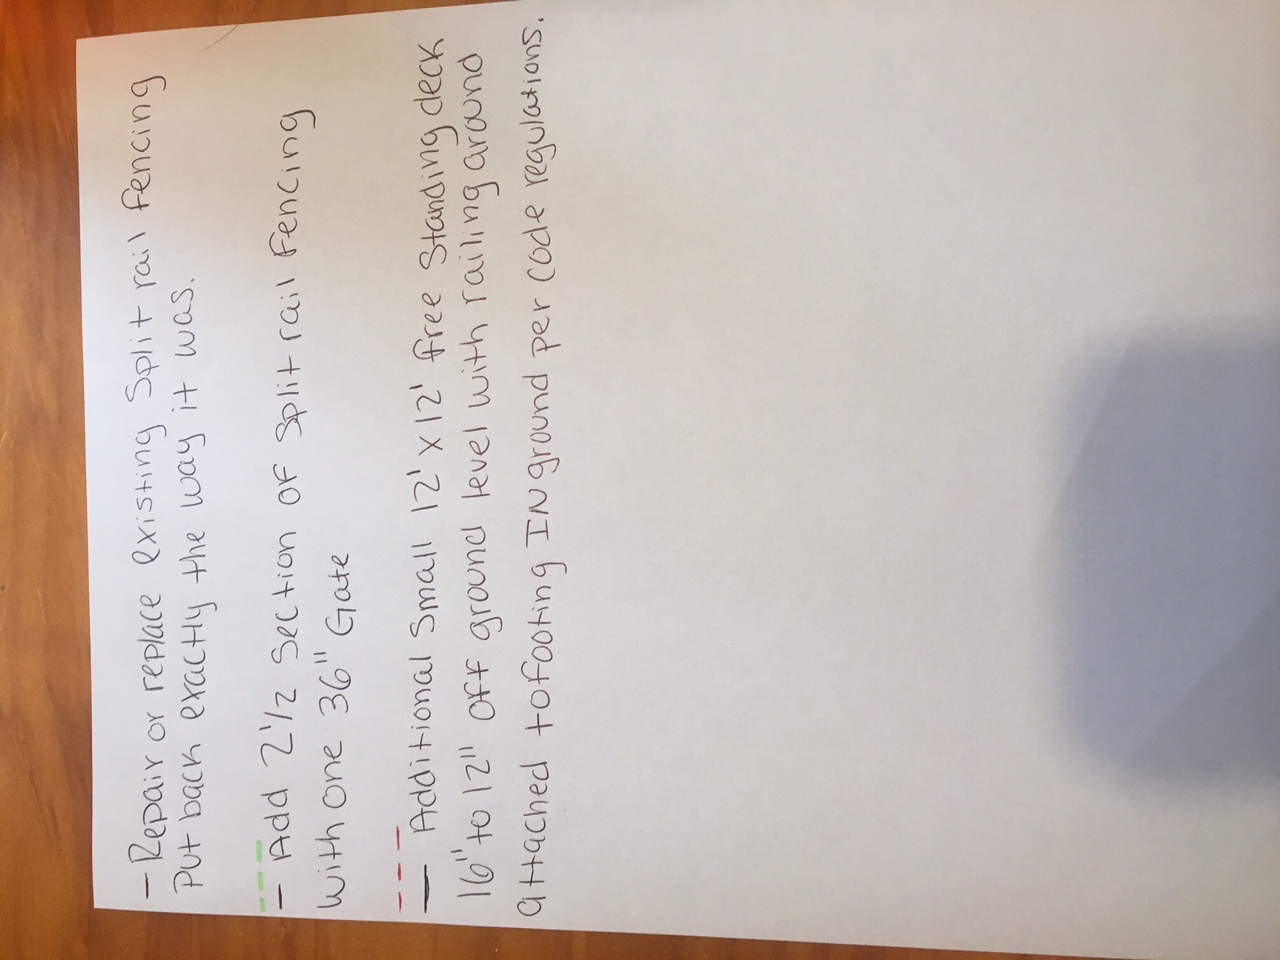 - Repair or replace existing Split rail fencing
Put back exactly the way it was.
- Add 2 1/2 section of split rail fencing
with one 36" Gate
- Additional small 12' x 12' free standing deck
16" to 12" off ground level with railing around
attached to footing IN ground per code regulations.